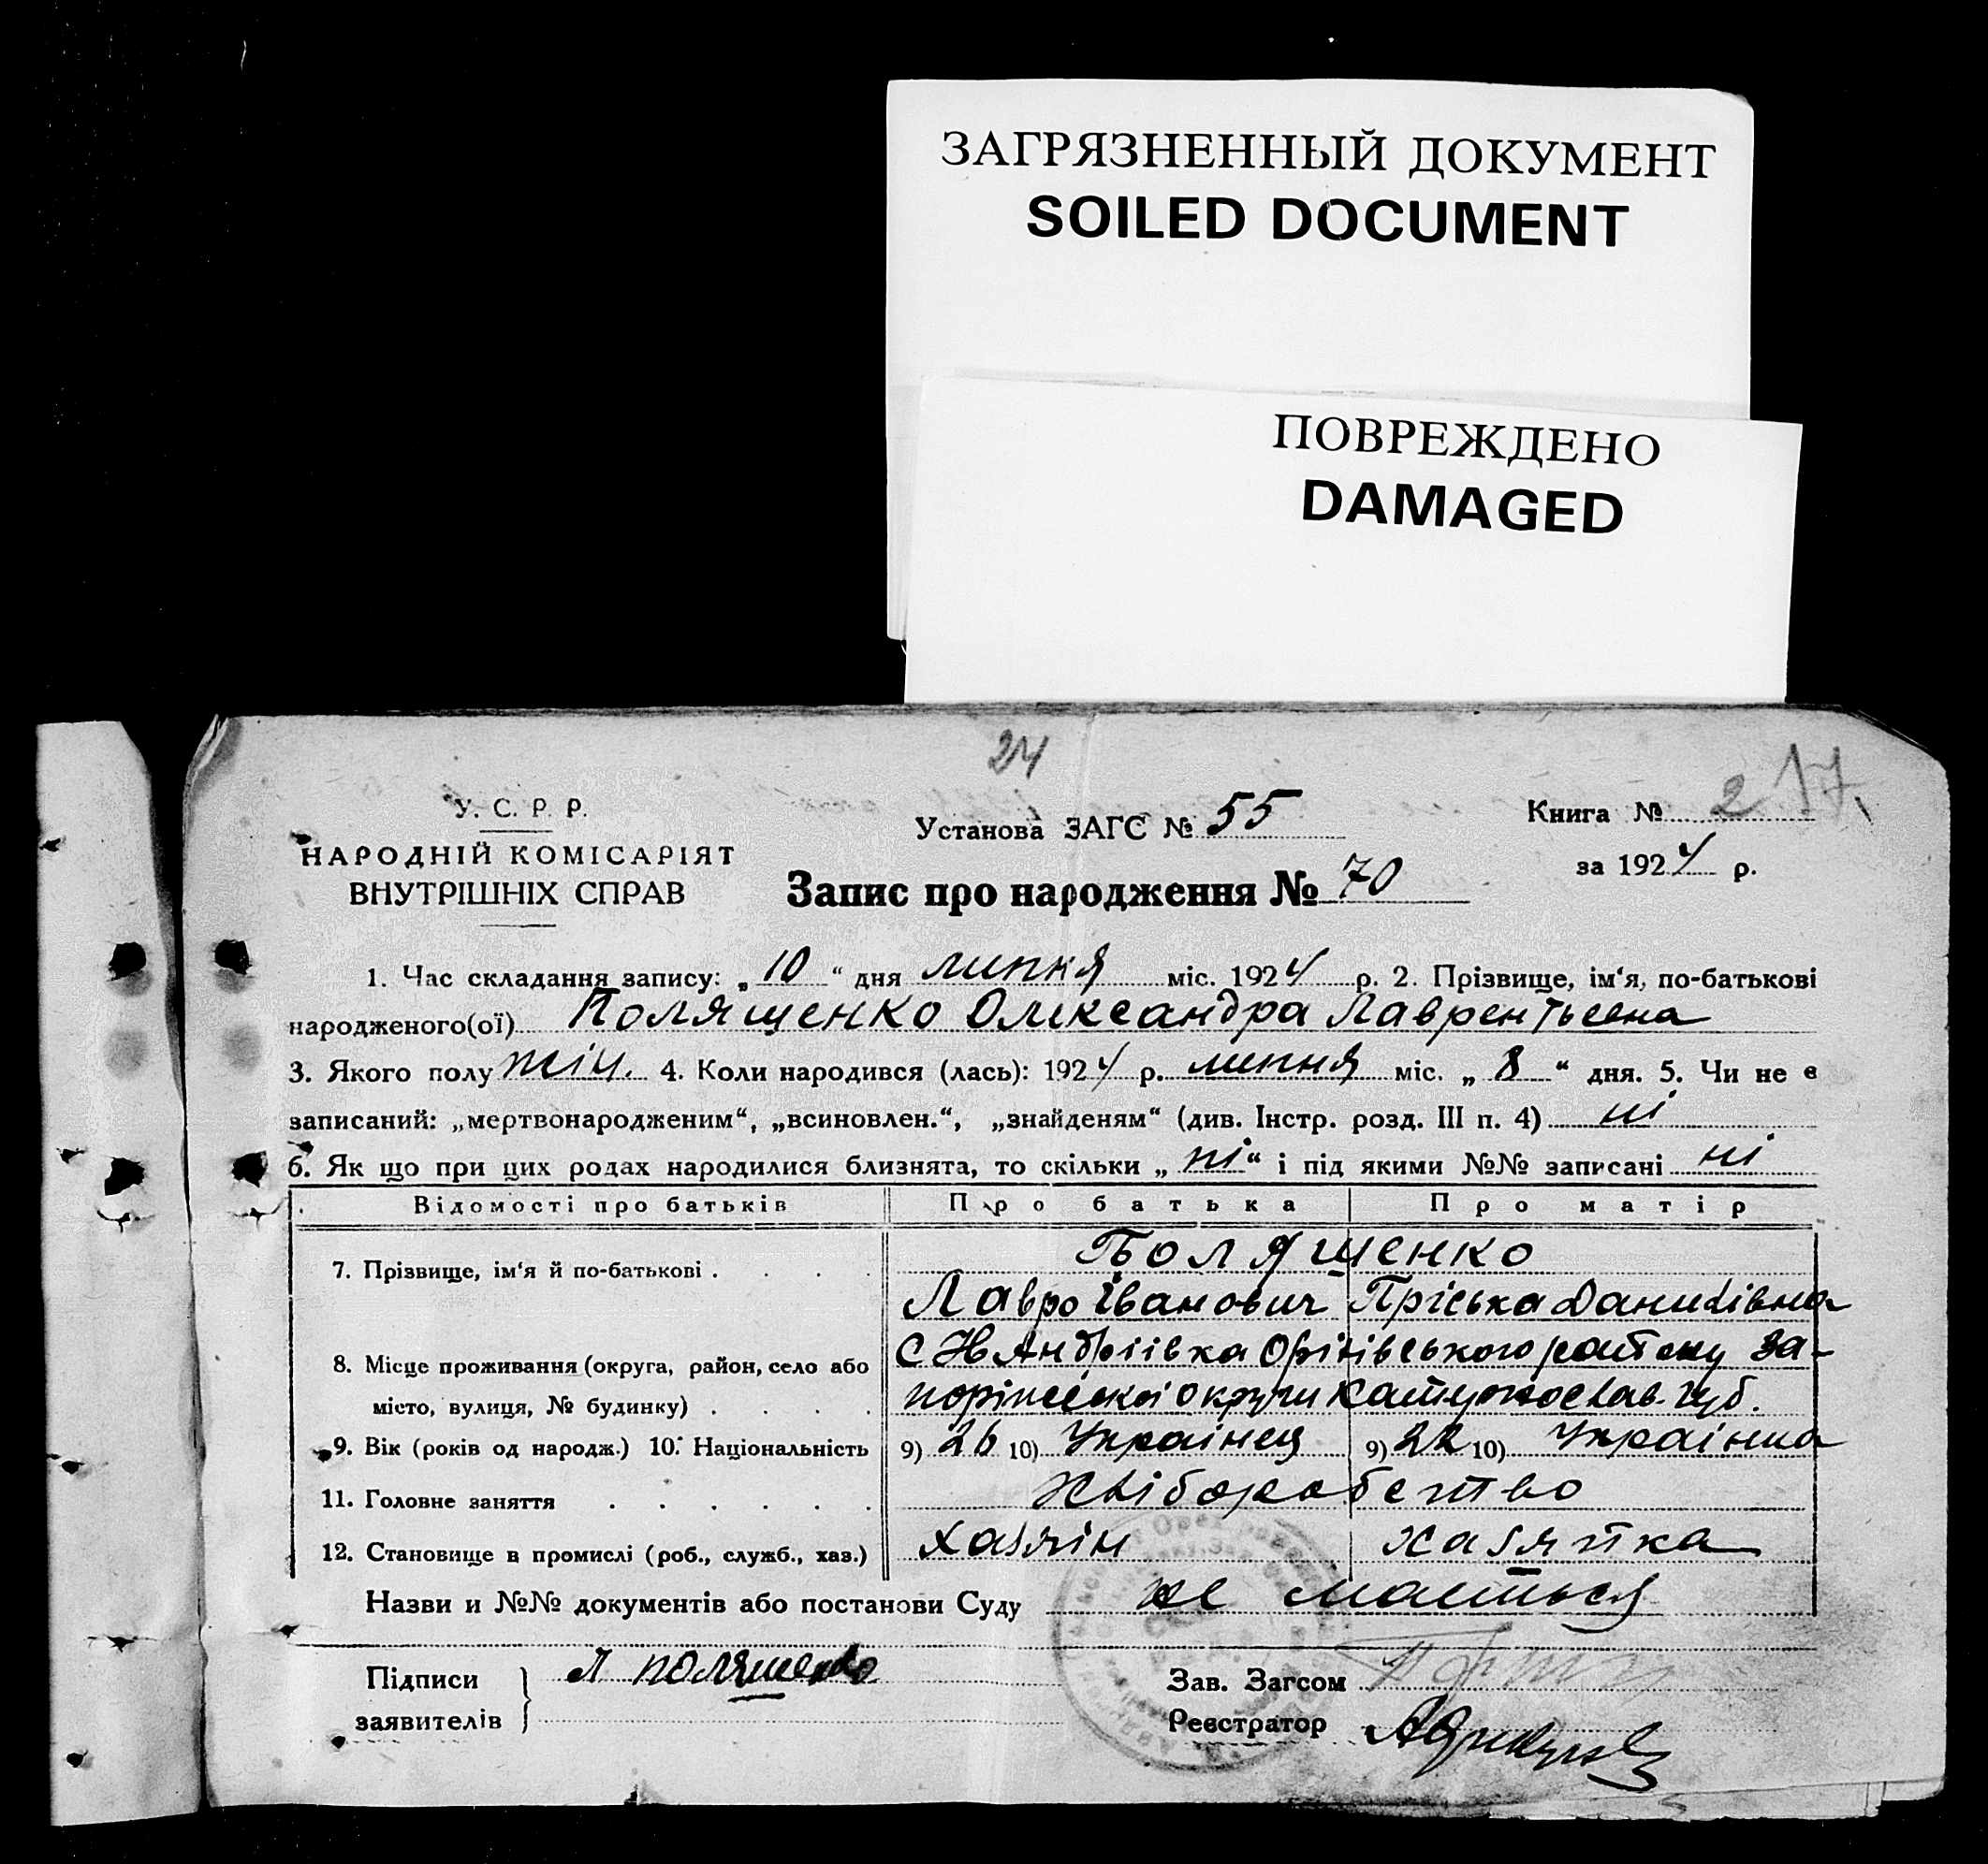 ЗАГРЯЗНЕННЫЙ ДОКУМЕНТ
SOILED DOCUMENT
ПОВРЕЖДЕНО
DAMAGED
24
2 17
У. С. Р. Р.
НАРОДНІЙ КОМІСАРІЯТ
ВНУТРІШНІХ СПРАВ
Установа ЗАГС № 55
Книга №
за 1924 р.
Запис про народження № 70
1. Час складання запису: „ 10 “ дня липня міс. 1924 р. 2. Прізвище, ім'я, по-батькові
народженого(ої) Полященко Олександра Лаврентьевна
3. Якого полу жін. 4. Коли народився (лась): 1924 р. липня міс. „ 8 “ дня. 5. Чи не є
записаний: „мертвонародженим“, „всиновлен.“, „знайденям“ (див. Інстр. розд. III п. 4) ні
6. Як що при цих родах народилися близнята, то скільки „ ні “ і під якими №№ записані ні
Відомості про батьків Про батька Про матір
7. Прізвище, ім'я й по-батькові . . . . Полященко
Лавро Іванович Пріська Данилівна
8. Місце проживання (округа, район, село або С НАндріівка Оріхівського району За-
місто, вулиця, № будинку) . . . . поріжської округи Катеринослав. губ.
9. Вік (років од народж.) 10. Національність 9) 26 10) Украінец 9) 22 10) Украінка
11. Головне заняття . . . . . . Хліборобство
12. Становище в промислі (роб., служб., хаз.) хазяін хазяйка
Назви и №№ документів або постанови Суду не маеться
Підписи
заявителів
Л Полященко
Зав. Загсом
Реєстратор